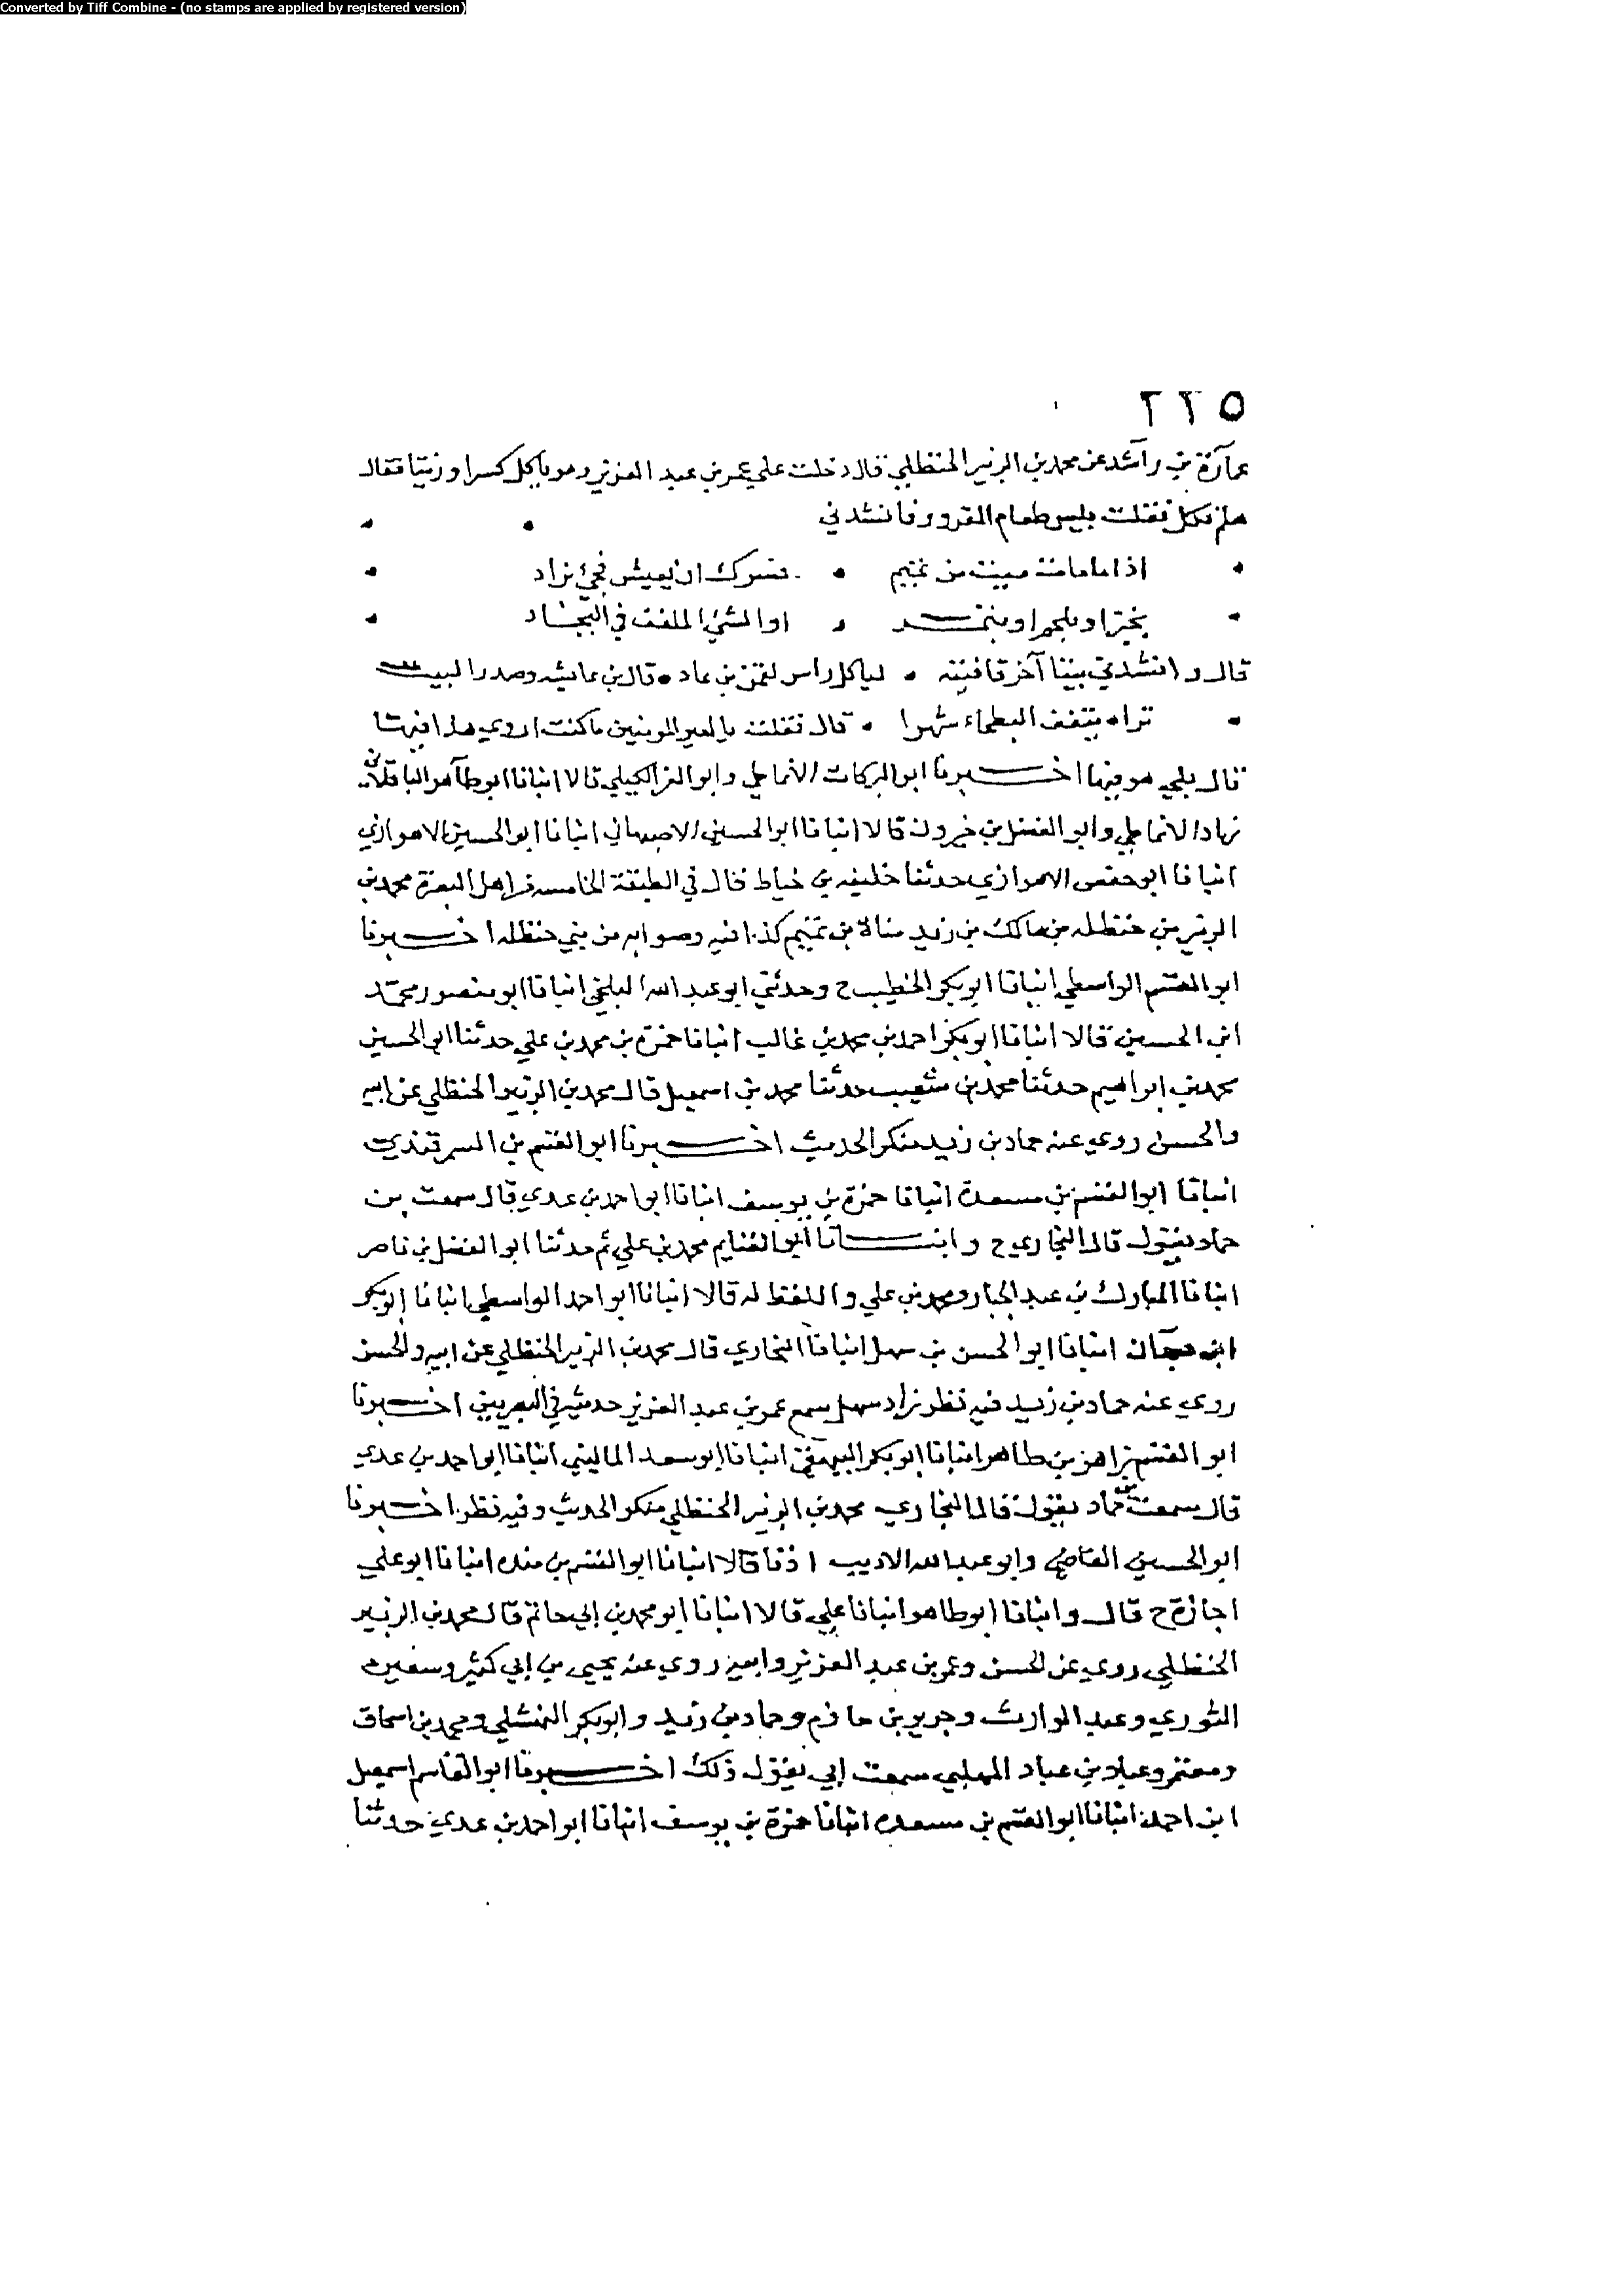 Converted by Tiff Combine - (no stamps are applied by registered version)
٢٢٥
عمارة بن راشد عن محمد بن الزبير الحنظلي قال دخلت على عمر بن عبد العزيز وهو ياكل كسرا وزيتا فقال
هلم فكل فقلت بليس طعام المقرور فانشدني
اذا ما مات ميت من تميم • فسرك ان يعيش فجئ بزاد
بخبز او بلحم او بتمر • او الشئ الملفف في البجاد
قال وانشدني بيتا آخر قافيته • لياكل راس لقمن بن عاد • قال بن عائشه وصدر البيت
تراه ينقف البطحاء شهرا • قال فقلت يا امير المومنين ما كنت اروي هذا فيها
قال بلى هو فيها اخبرنا ابو البركات الانماطي وابو العز الكيلي قالا انبانا ابو طاهر الباقلاني
زاد الانماطي وابو الفضل بن خيرون قالا انبانا ابو الحسين الاصبهاني انبانا ابو الحسين الاهوازي
انبانا ابو حفص الاهوازي حدثنا خليفه بن خياط قال في الطبقة الخامسه من اهل البصرة محمد بن
الزبير من حنظله بن مالك بن زيد مناة بن تميم كذا فيه وصوابه من بني حنظله اخبرنا
ابو القسم الواسطي انبانا ابو بكر الخطيب ح وحدثني ابو عبد الله البلخي انبانا ابو منصور محمد
ابن الحسين قالا انبانا ابو بكر احمد بن محمد بن غالب انبانا حمزة بن محمد بن علي حدثنا ابو الحسين
محمد بن ابراهيم حدثنا محمد بن شعيب حدثنا محمد بن اسمعيل قال محمد بن الزبير الحنظلي عن ابيه
والحسن روى عنه حماد بن زيد منكر الحديث اخبرنا ابو القسم بن السمرقندي
انبانا ابو القسم بن مسعدة انبانا حمزة بن يوسف انبانا ابو احمد بن عدي قال سمعت بن
حماد يقول قال البخاري ح وانبانا ابو الغنايم محمد بن علي ثم حدثنا ابو الفضل بن ناصر
انبانا المبارك بن عبد الجبار ومحمد بن علي واللفظ له قالا انبانا ابو احمد الواسطي انبانا ابو بكر
ابن انبانا ابو الحسن بن سهل انبانا البخاري قال محمد بن الزبير الحنظلي عن ابيه والحسن
روى عنه حماد بن زيد فيه نظر زاد سهل سمع عمر بن عبد العزيز حديثه في البصريين اخبرنا
ابو القسم زاهر بن طاهر انبانا ابو بكر البيهقي انبانا ابو سعد الماليني انبانا ابو احمد بن عدي
قال سمعت بن حماد يقول قال البخاري محمد بن الزبير الحنظلي منكر الحديث وفيه نظر اخبرنا
ابو الحسين القاضي وابو عبد الله الاديب اذنا قالا انبانا ابو القسم بن منده انبانا ابو علي
اجازة ح قال وانبانا ابو طاهر انبانا علي قالا انبانا ابو محمد بن ابي حاتم قال محمد بن الزبير
الحنظلي روى عن الحسن وعمر بن عبد العزيز وابيه روى عنه يحيى بن ابي كثير وسفين
الثوري وعبد الوارث وجرير بن حازم وحماد بن زيد وابو بكر النهشلي ومحمد بن اسحاق
ومعتمر وعباد بن عباد المهلبي سمعت ابي يقول ذلك اخبرنا ابو القاسم اسمعيل
ابن احمد انبانا ابو القسم بن مسعده انبانا حمزة بن يوسف انبانا ابو احمد بن عدي حدثنا